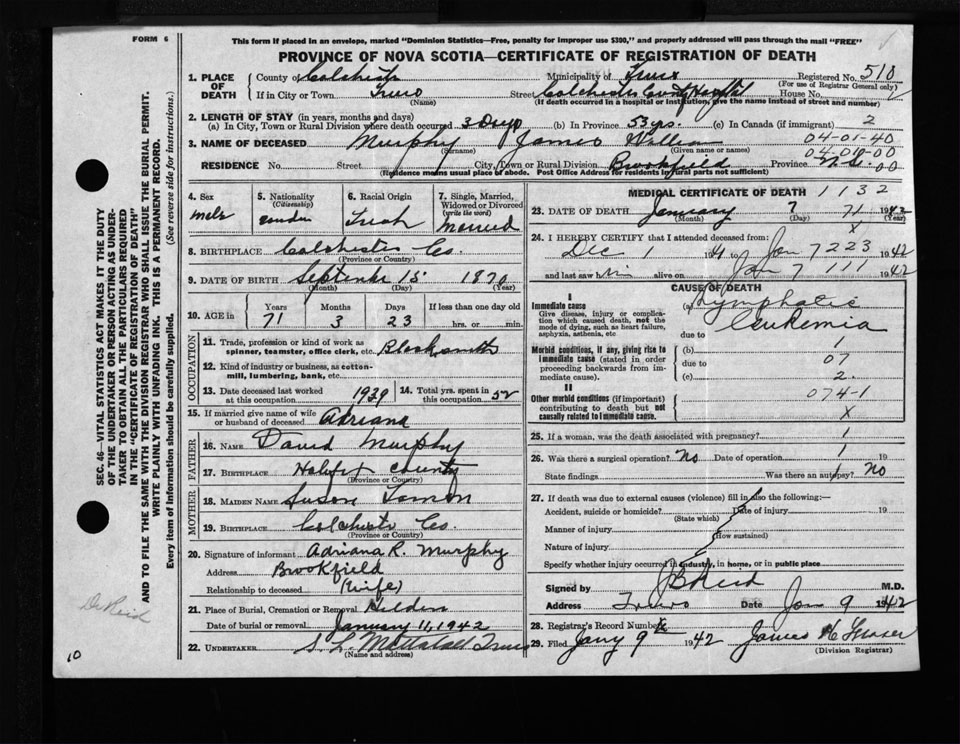 FORM 6
This form if placed in an envelope, marked "Dominion Statistics—Free, penalty for improper use $300," and properly addressed will pass through the mail "FREE"
PROVINCE OF NOVA SCOTIA—CERTIFICATE OF REGISTRATION OF DEATH
1. PLACE OF DEATH
County of Colchester Municipality of Truro Registered No. 510
(For use of Registrar General only)
If in City or Town Truro Street Colchester County Hospital House No.
(Name) (If death occurred in a hospital or institution, give the name instead of street and number)
2. LENGTH OF STAY (in years, months and days)
(a) In City, Town or Rural Division where death occurred 3 Days (b) In Province 53 yrs. (c) In Canada (if immigrant) 2
04-01-40
3. NAME OF DECEASED Murphy James William
(Surname) (Given name or names)
04-010-00
RESIDENCE No. Street City, Town or Rural Division Brookfield Province N.S. 00
(Residence means usual place of abode. Post Office Address for residents in rural parts not sufficient)
4. Sex
male
5. Nationality
(Citizenship)
6. Racial Origin
Irish
7. Single, Married, Widowed or Divorced
(write the word)
Married
8. BIRTHPLACE Colchester Co.
(Province or Country)
9. DATE OF BIRTH September 15 1870
(Month) (Day) (Year)
10. AGE in
Years Months Days If less than one day old
71 3 23 hrs. or min.
OCCUPATION
11. Trade, profession or kind of work as spinner, teamster, office clerk, etc. Blacksmith
12. Kind of industry or business, as cotton-mill, lumbering, bank, etc.
13. Date deceased last worked at this occupation 1939
14. Total yrs. spent in this occupation 52
15. If married give name of wife or husband of deceased Adriana
FATHER
16. NAME David Murphy
17. BIRTHPLACE Halifax County
(Province or Country)
MOTHER
18. MAIDEN NAME Susan
19. BIRTHPLACE Colchester Co.
(Province or Country)
20. Signature of informant Adriana R. Murphy
Address Brookfield
Relationship to deceased (Wife)
21. Place of Burial, Cremation or Removal Hilden
Date of burial or removal January 11, 1942
22. UNDERTAKER S. L. Mattatall Truro
(Name and address)
MEDICAL CERTIFICATE OF DEATH 1132
23. DATE OF DEATH January 7 71 1942
(Month) (Day) (Year)
X
24. I HEREBY CERTIFY that I attended deceased from:
Dec 1 1941 to Jan 7 223 1942
and last saw him alive on Jan 7 111 1942
CAUSE OF DEATH
I
Immediate cause
Give disease, injury or complication which caused death, not the mode of dying, such as heart failure, asphyxia, asthenia, etc
(a) Lymphatic Leukemia
due to
Morbid conditions, if any, giving rise to immediate cause (stated in order proceeding backwards from immediate cause).
(b) 1
due to 07
(c) 2.
II
Other morbid conditions (if important) contributing to death but not causally related to immediate cause.
074-1
X
25. If a woman, was the death associated with pregnancy? 1
26. Was there a surgical operation? No Date of operation 1 19
State findings Was there an autopsy? No
27. If death was due to external causes (violence) fill in also the following:—
Accident, suicide or homicide? Date of injury 19
(State which)
Manner of injury
(How sustained)
Nature of injury
Specify whether injury occurred in industry, in home, or in public place
Signed by J B Reid M.D.
Address Truro Date Jan 9 1942
28. Registrar's Record Number
29. Filed Jany 9th 1942 James H Fraser
(Division Registrar)
SEC. 46—VITAL STATISTICS ACT MAKES IT THE DUTY
OF THE UNDERTAKER OR PERSON ACTING AS UNDER-
TAKER TO OBTAIN ALL THE PARTICULARS REQUIRED
IN THE "CERTIFICATE OF REGISTRATION OF DEATH"
AND TO FILE THE SAME WITH THE DIVISION REGISTRAR WHO SHALL ISSUE THE BURIAL PERMIT.
WRITE PLAINLY WITH UNFADING INK. THIS IS A PERMANENT RECORD.
Every item of Information should be carefully supplied. (See reverse side for instructions.)
Dr Reid
10